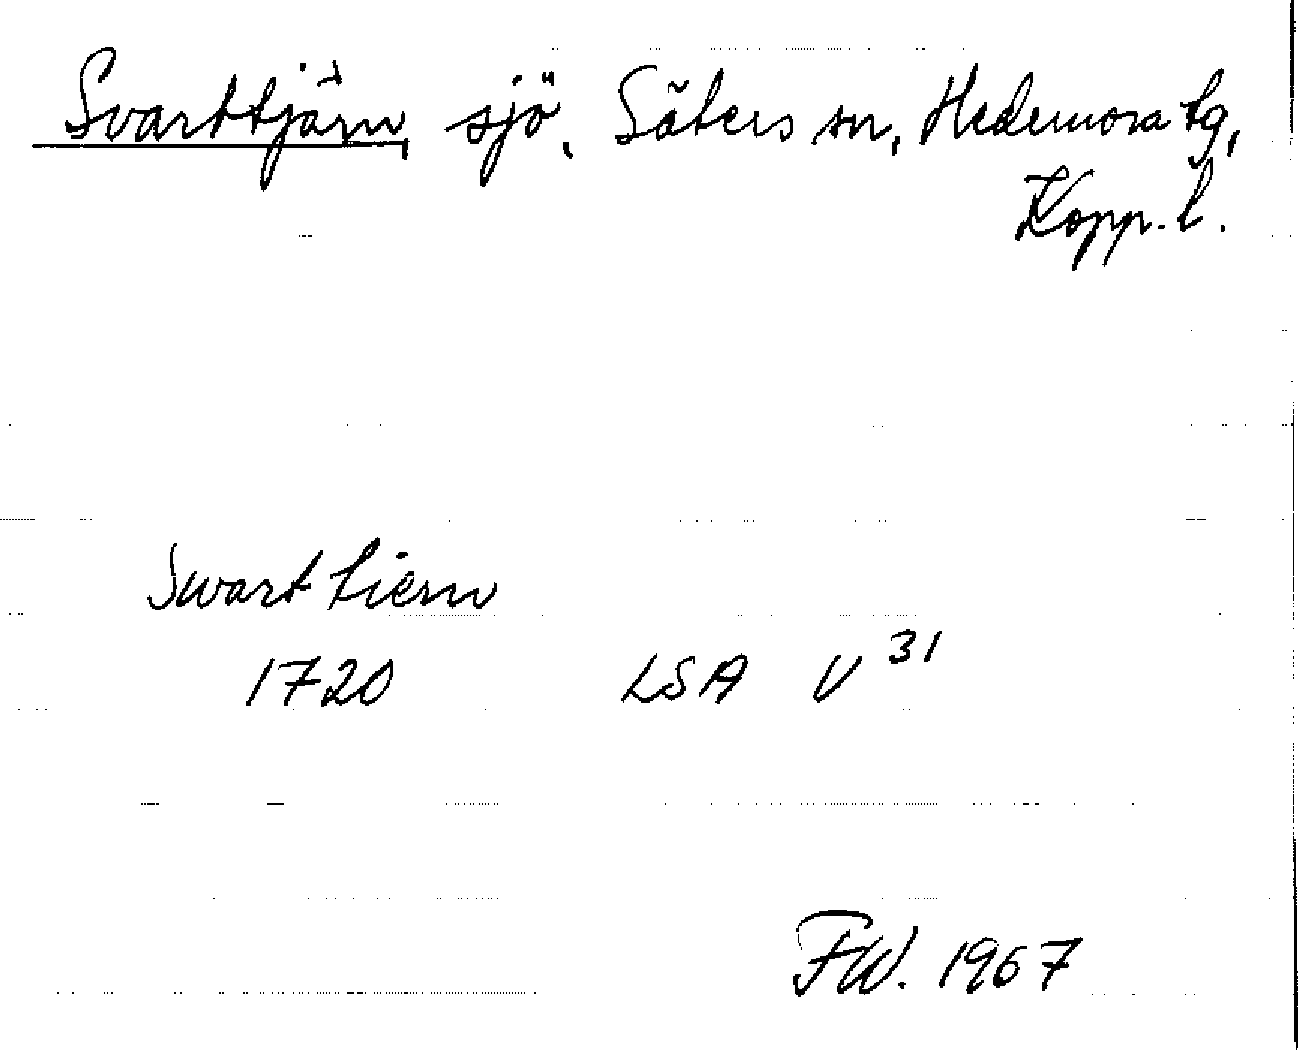 Svarttjärn, sjö, Säters sn, Hedemora tg,
Kopp. l.
Swart tiern
1720 LSA V 31
FW. 1967